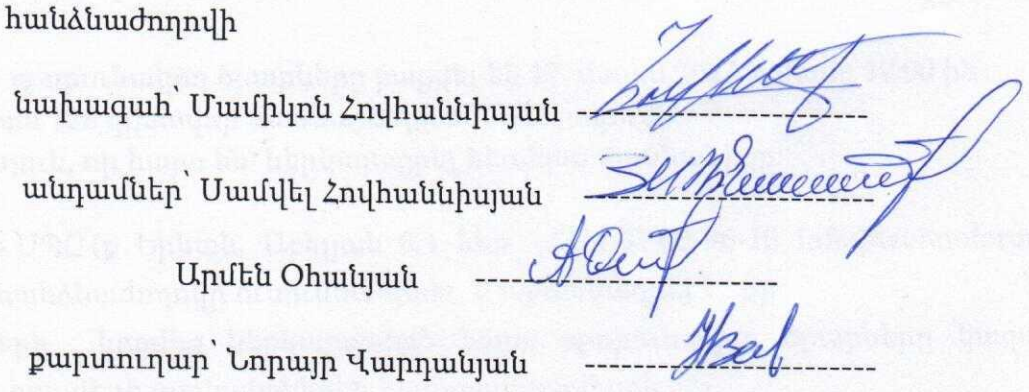 հանձնաժողովի
նախագահ՝ Մամիկոն Հովհաննիսյան
անդամներ՝ Սամվել Հովհաննիսյան
Արմեն Օհանյան
քարտուղար՝ Նորայր Վարդանյան